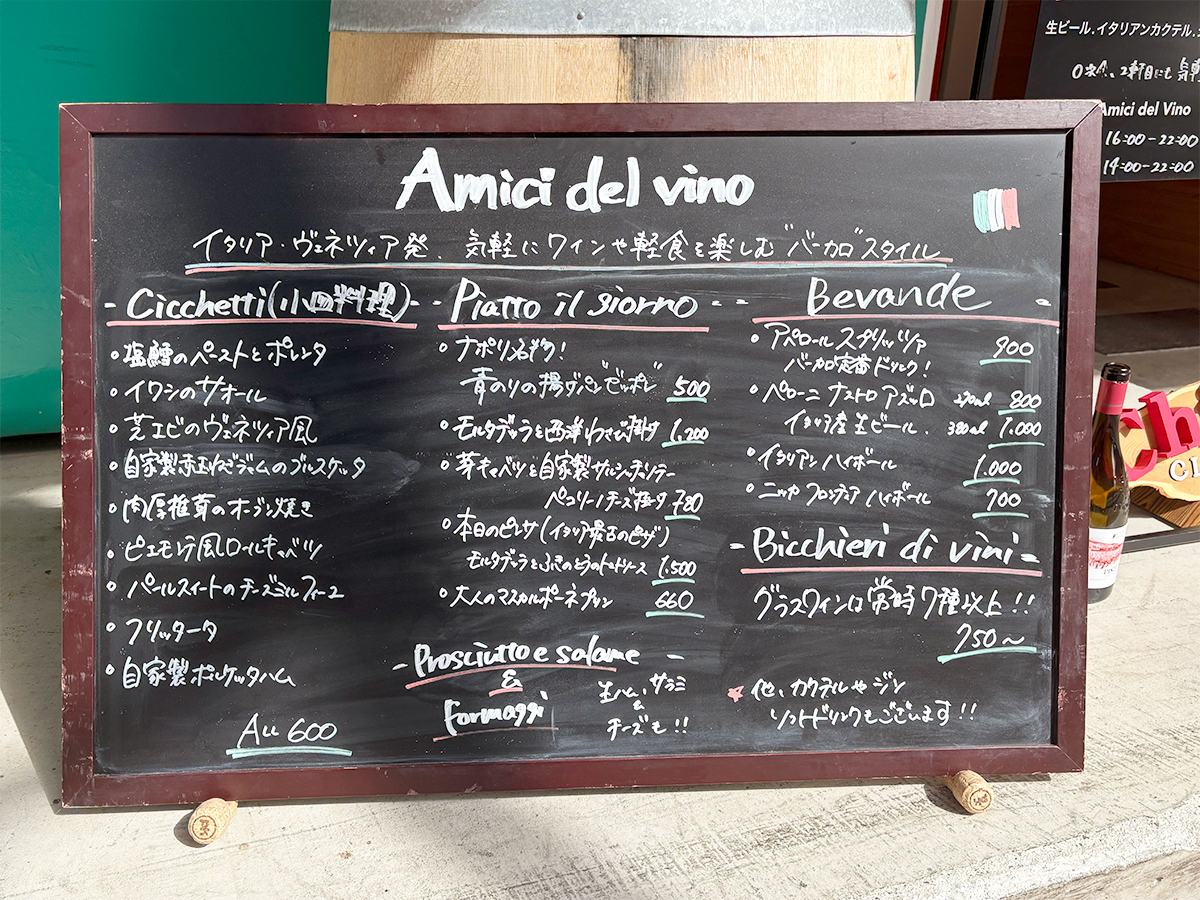 Amici del vino
イタリア・ヴェネツィア発、気軽にワインや軽食を楽しむ"バーカロ"スタイル
- Cicchetti(小皿料理) -
・塩鱈のペーストとポレンタ
・イワシのサオール
・芝エビのヴェネツィア風
・自家製赤玉ねぎジャムのブルスケッタ
・肉厚椎茸のオーブン焼き
・ピエモンテ風ロールキャベツ
・パールスイートのチーズミルフィーユ
・フリッタータ
・自家製ポルケッタハム
ALL 600
- Piatto il giorno - -
・ナポリ名物!
青のりの揚げパン"ゼッポレ" 500
・モルタデッラと西洋わさび掛け 1,200
・芽キャベツと自家製サルシッチャソテー
ペコリーノチーズ掛け 780
・本日のピンサ(イタリア最古のピザ)
モルタデッラとふきのとうのトマトソース 1,500
・大人のマスカルポーネプリン 660
- Prosciutto e salame -
&
formaggi
生ハム、サラミ
&
チーズも!!
- Bevande -
・アペロール スプリッツァ 900
バーカロ定番ドリンク!
・ペローニ ナストロ アズーロ 270ml 800
イタリア産生ビール. 380ml 1,000
・イタリアン ハイボール 1,000
・ニッカ フロンティア ハイボール 700
- Bicchieri di vini -
グラスワインは常時7種以上!!
750～
☆他、カクテルやジン
ソフトドリンクもございます!!
生ビール、イタリアンカクテル、
0次会、2軒目にも 気軽
Amici del Vino
16:00-22:00
14:00-22:00